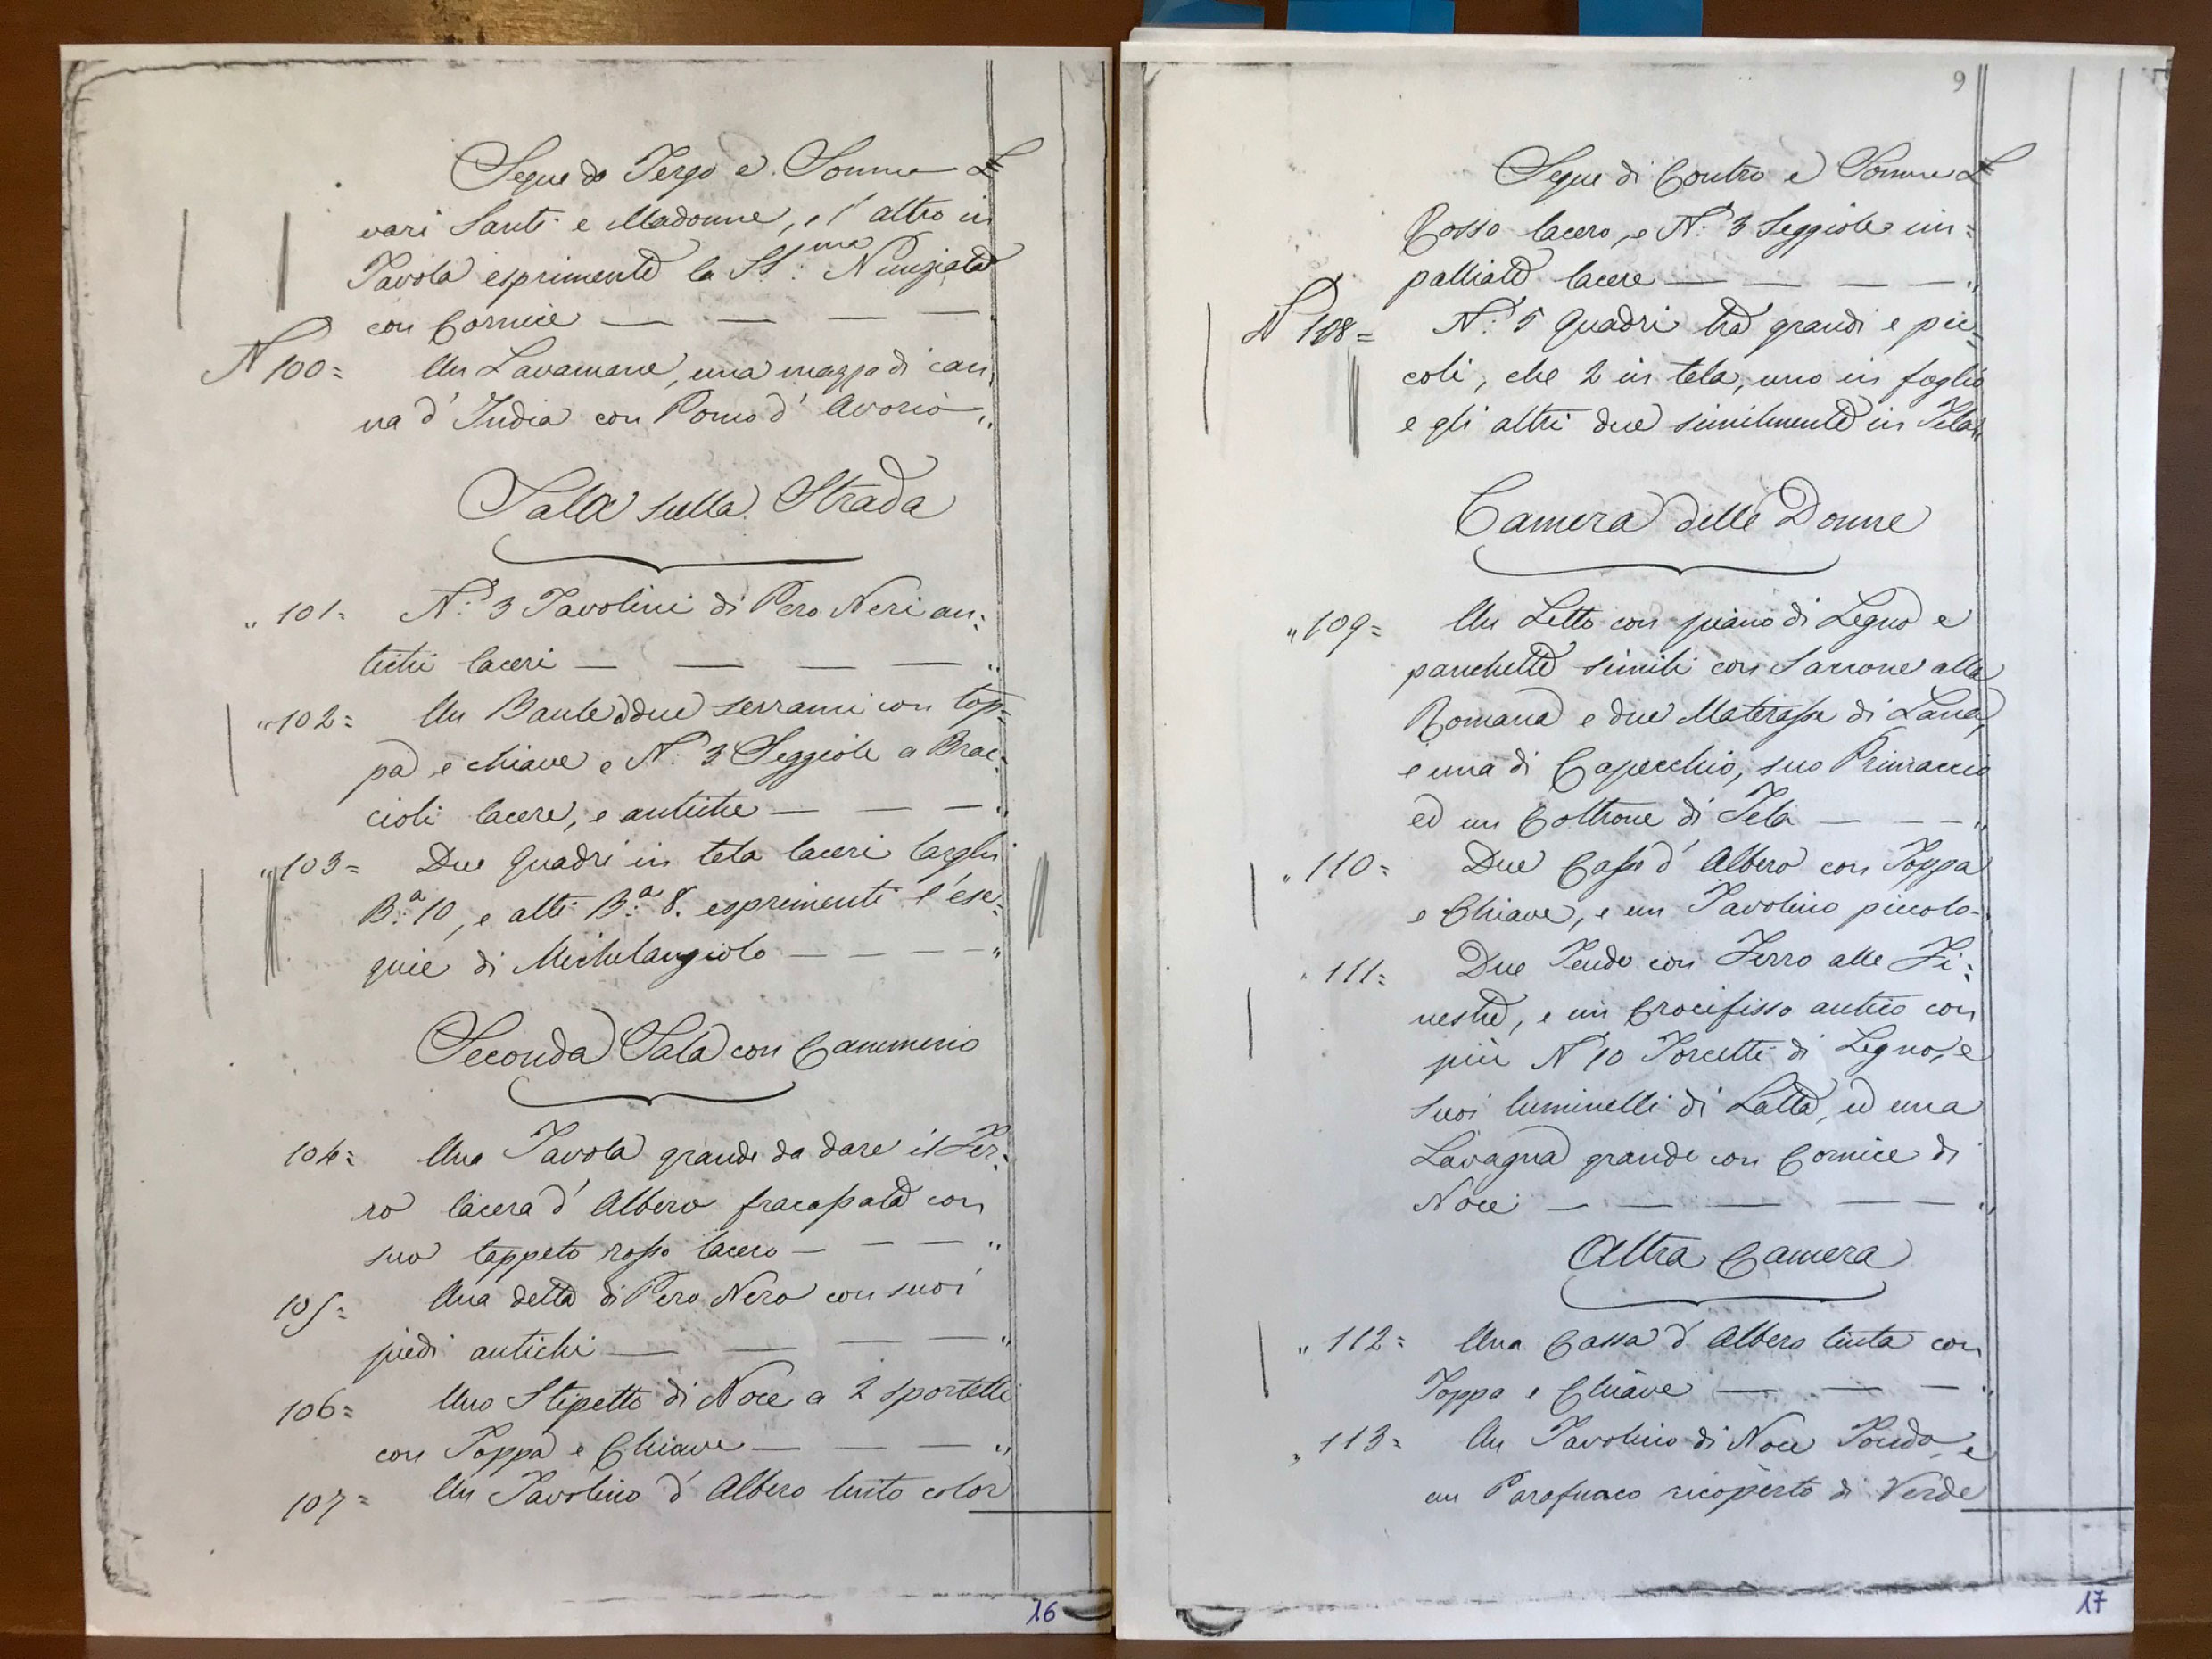 Segue da Tergo e Somma £
vari Santi e Madonne, e l'altro in
Tavola esprimente la SS:ma Nunziata
con Cornice — — — — "
N 100= Un Lavamane, una mazza di can:
na d'India con Pomo d'Avorio "
Sala sulla Strada
" 101= N.° 3 Tavolini di Pero Neri an:
tichi laceri — — — — "
" 102= Un Baule a due serrami con top=
pa e chiave e N.° 3 Seggiole a Brac:
cioli lacere, e antiche — — — "
" 103= Due Quadri in tela laceri larghi
B:a 10, e alti B:a 8. esprimenti l'ese:
quie di Michelangiolo — — — — "
Seconda Sala con Cammino
104= Una Tavola grande da dare il Fer:
ro lacera d'Albero fracassata con
suo tappeto rosso lacero — — — "
105= Una detta di Pero Nero con suoi
piedi antichi — — — — "
106= Uno Stipetto di Noce a 2 sportelli
con Toppa e Chiave — — — "
107= Un Tavolino d'Albero tinto color
16
9
Segue di Contro e Somma £
Rosso lacero, e N.° 3 Seggiole im:
palliate lacere — — — — "
N 108= N.° 5 Quadri trà grandi e pic=
coli, che 2 in tela, uno in foglio
e gli altri due similmente in Tela "
Camera delle Donne
" 109= Un Letto con piano di Legno e
panchette simili con Saccone alla
Romana e due Materasse di Lana,
e una di Capecchio, suo Primaccio
ed un Coltrone di Tela — — — "
" 110= Due Casse d'Albero con Toppa
e Chiave, e un Tavolino piccolo - "
" 111= Due Tende con Ferro alle Fi:
nestre, e un Crocifisso antico con
più N.° 10 Torcetti di Legno, e
suoi luminelli di Latta, ed una
Lavagna grande con Cornice di
Noce — — — — — "
Altra Camera
" 112= Una Cassa d'Albero tinta con
Toppa e Chiave — — — "
" 113= Un Tavolino di Noce Tondo, e
un Parafuoco ricoperto di Verde
17